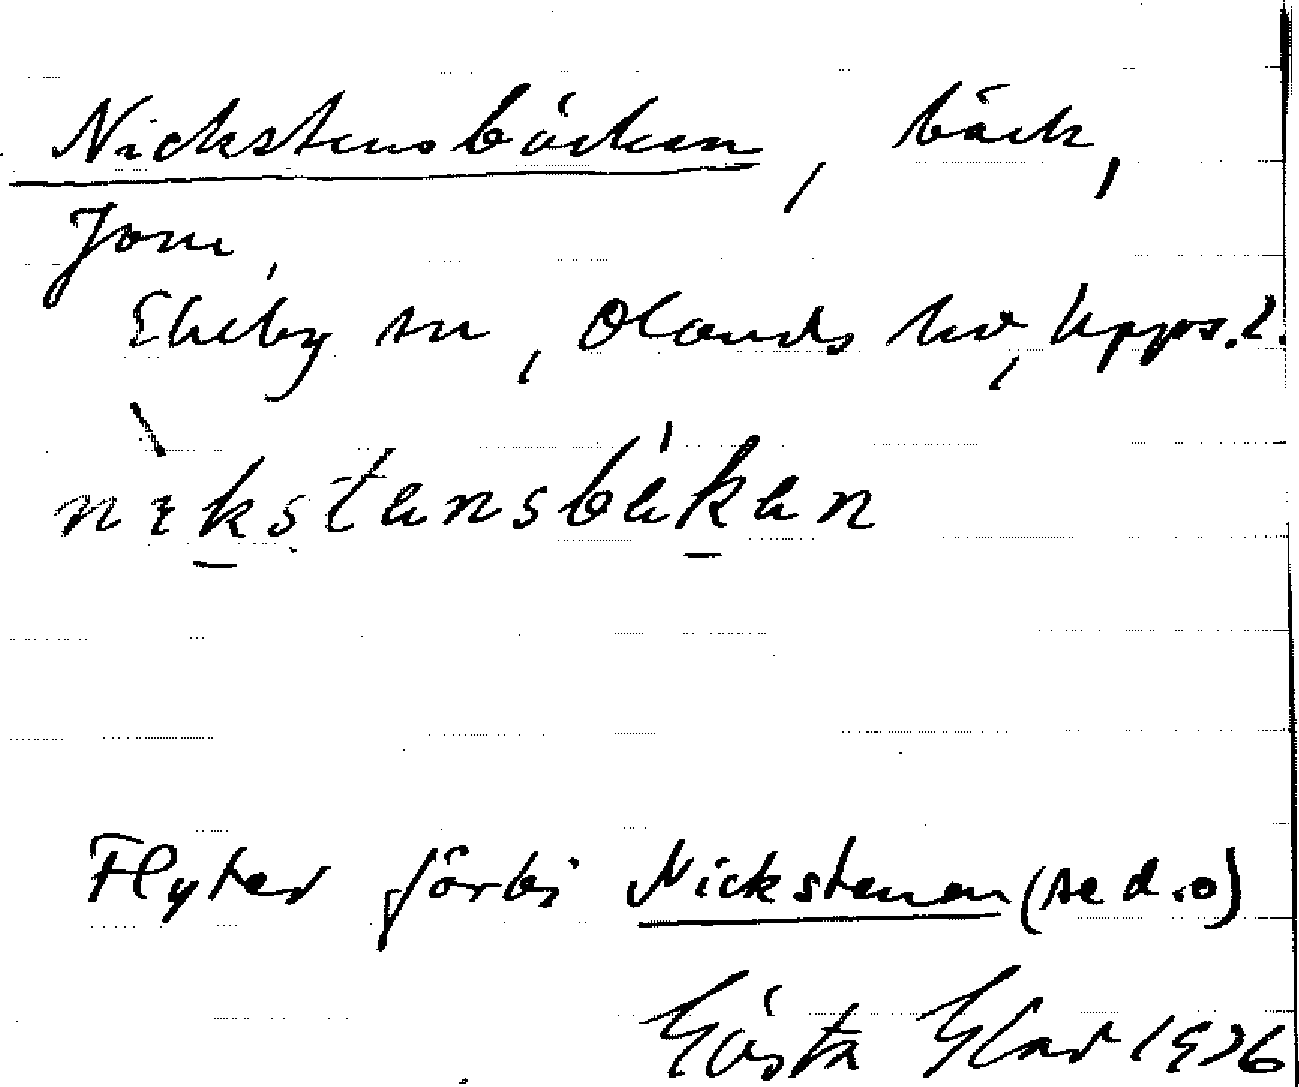 Nickstensbäcken, bäck,
Jom,
Ekeby sn, Olands hd, Upps.l.
nikstensbäken
Flyter förbi Nickstenen (se d.o)
Gösta 1936